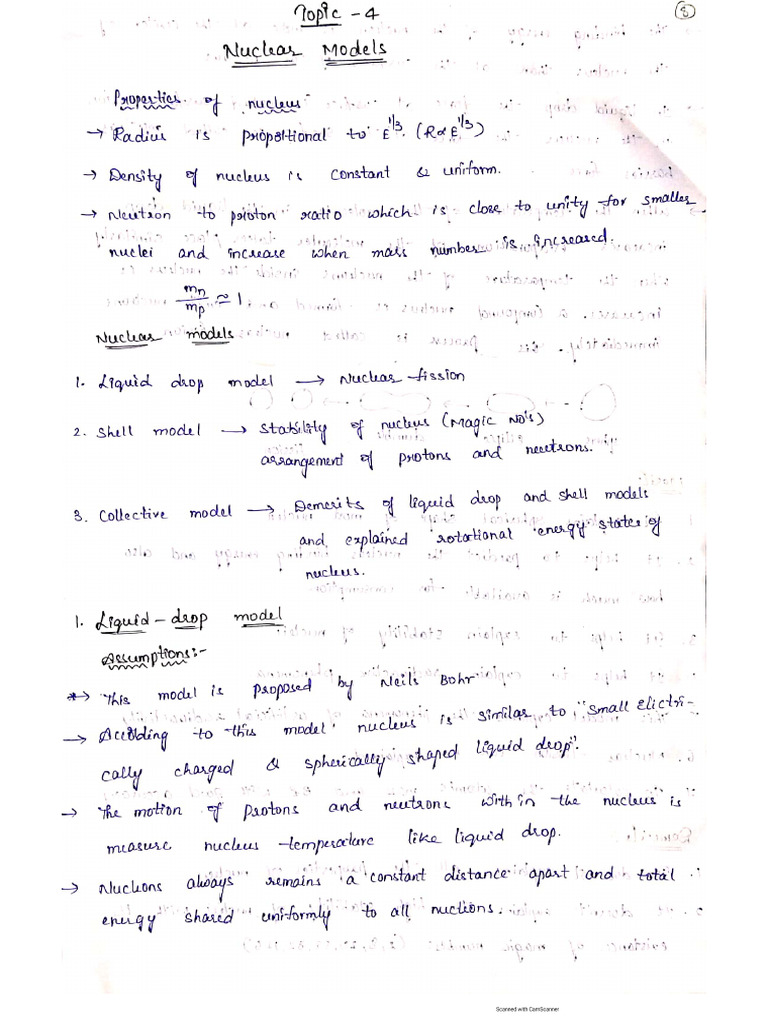 Topic - 4
8
Nuclear Models
Properties of nucleus
→ Radius is propotional to E^1/3. (R∝E^1/3)
→ Density of nucleus is constant & uniform.
→ Neutron to proton ratio which is close to unity for smaller
nuclei and increase when mass number is increased.
mn/mp ≃ 1
Nuclear models
1. Liquid drop model → Nuclear fission
2. Shell model → Stability of nucleus (Magic NO's)
arrangement of protons and neutrons.
3. Collective model → Demerits of liquid drop and shell models
and explained rotational energy states of
nucleus.
1. Liquid - drop model
Assumptions:-
*→ This model is proposed by Neils Bohr
→ According to this model nucleus is similar to "small Electri-
cally charged & spherically shaped liquid drop".
→ The motion of protons and neutrons with in the nucleus is
measure nucleus temperature like liquid drop.
→ Nuclions always remains a constant distance apart and total
energy shared uniformly to all nuclions.
Scanned with CamScanner